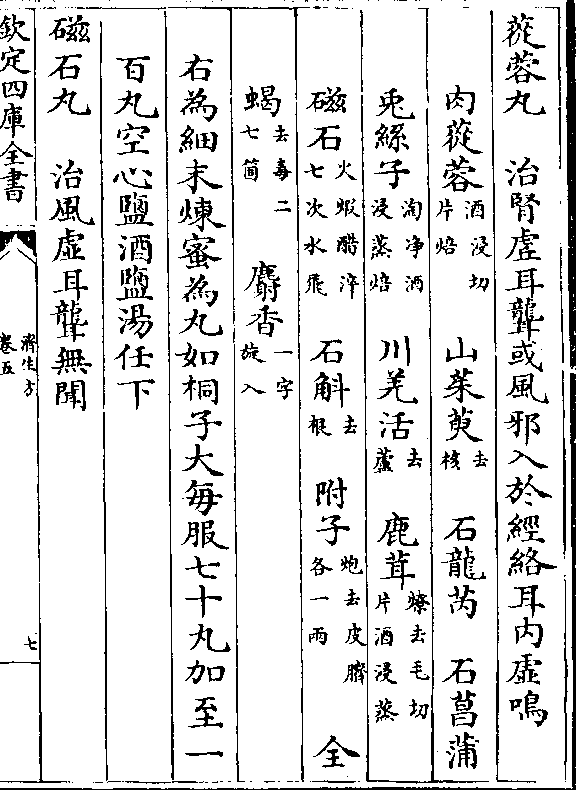 蓯蓉丸　治腎虛耳聾或風邪入於經絡耳内虛鳴
肉蓯蓉酒浸切片焙　山茱萸去核　石龍芮　石菖蒲
兎絲子淘净酒浸蒸焙　川羌活去蘆　鹿茸燎去毛切片酒浸蒸
磁石火煆醋淬七次水飛　石斛去根　附子炮去皮臍各一兩　全
蝎去毒二七箇　麝香一字旋入
右為細末煉蜜為丸如桐子大每服七十丸加至一
百丸空心鹽酒鹽湯任下
磁石丸　治風虛耳聾無聞
欽定四庫全書
濟生方
卷五
七